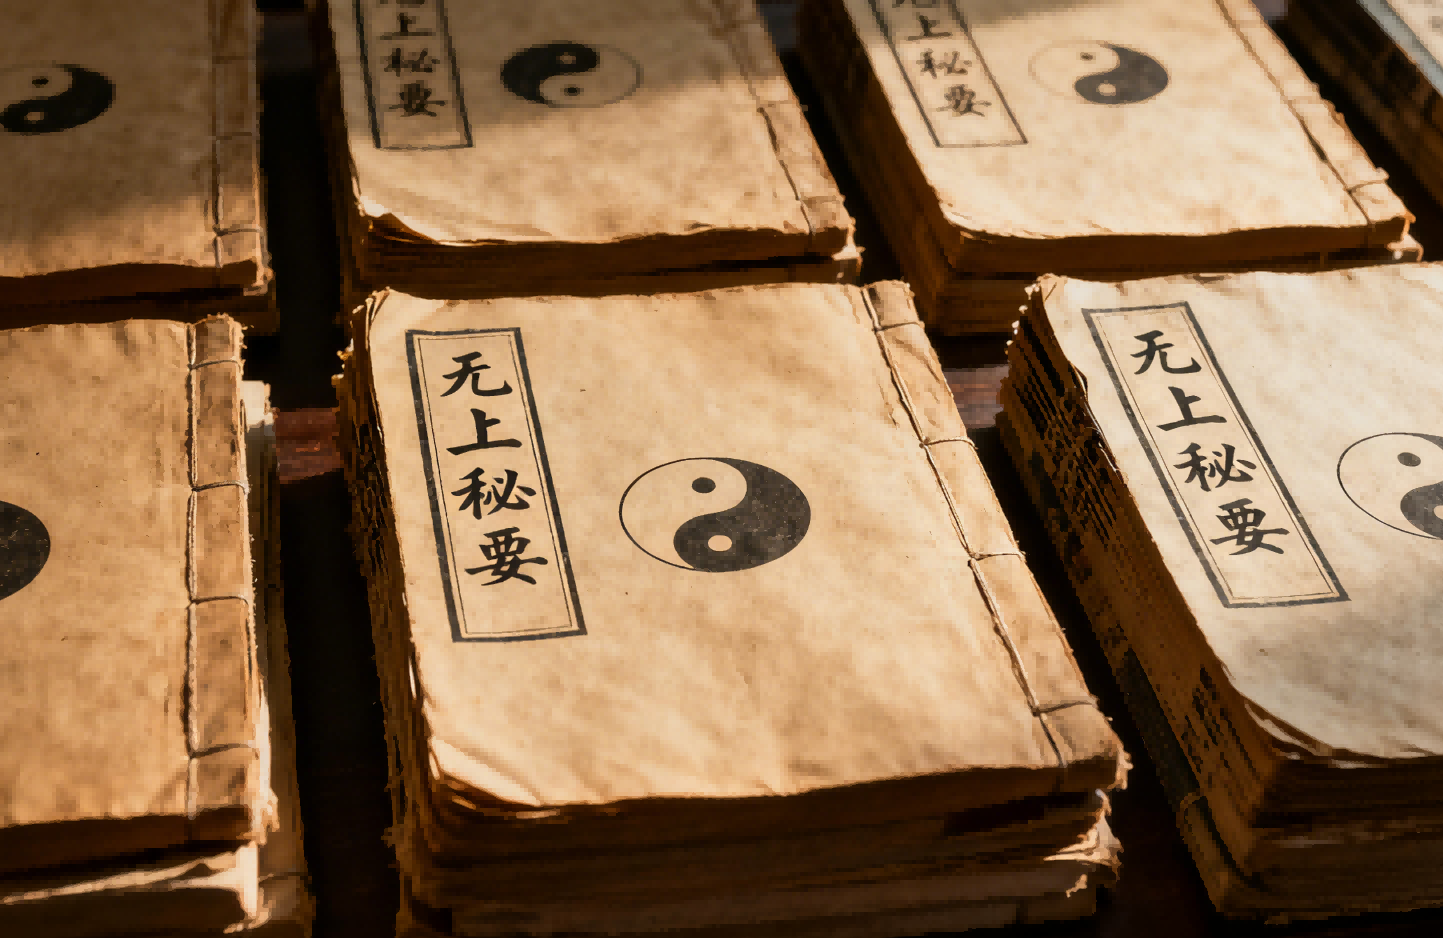 上秘要
上秘要
无上秘要
无上秘要